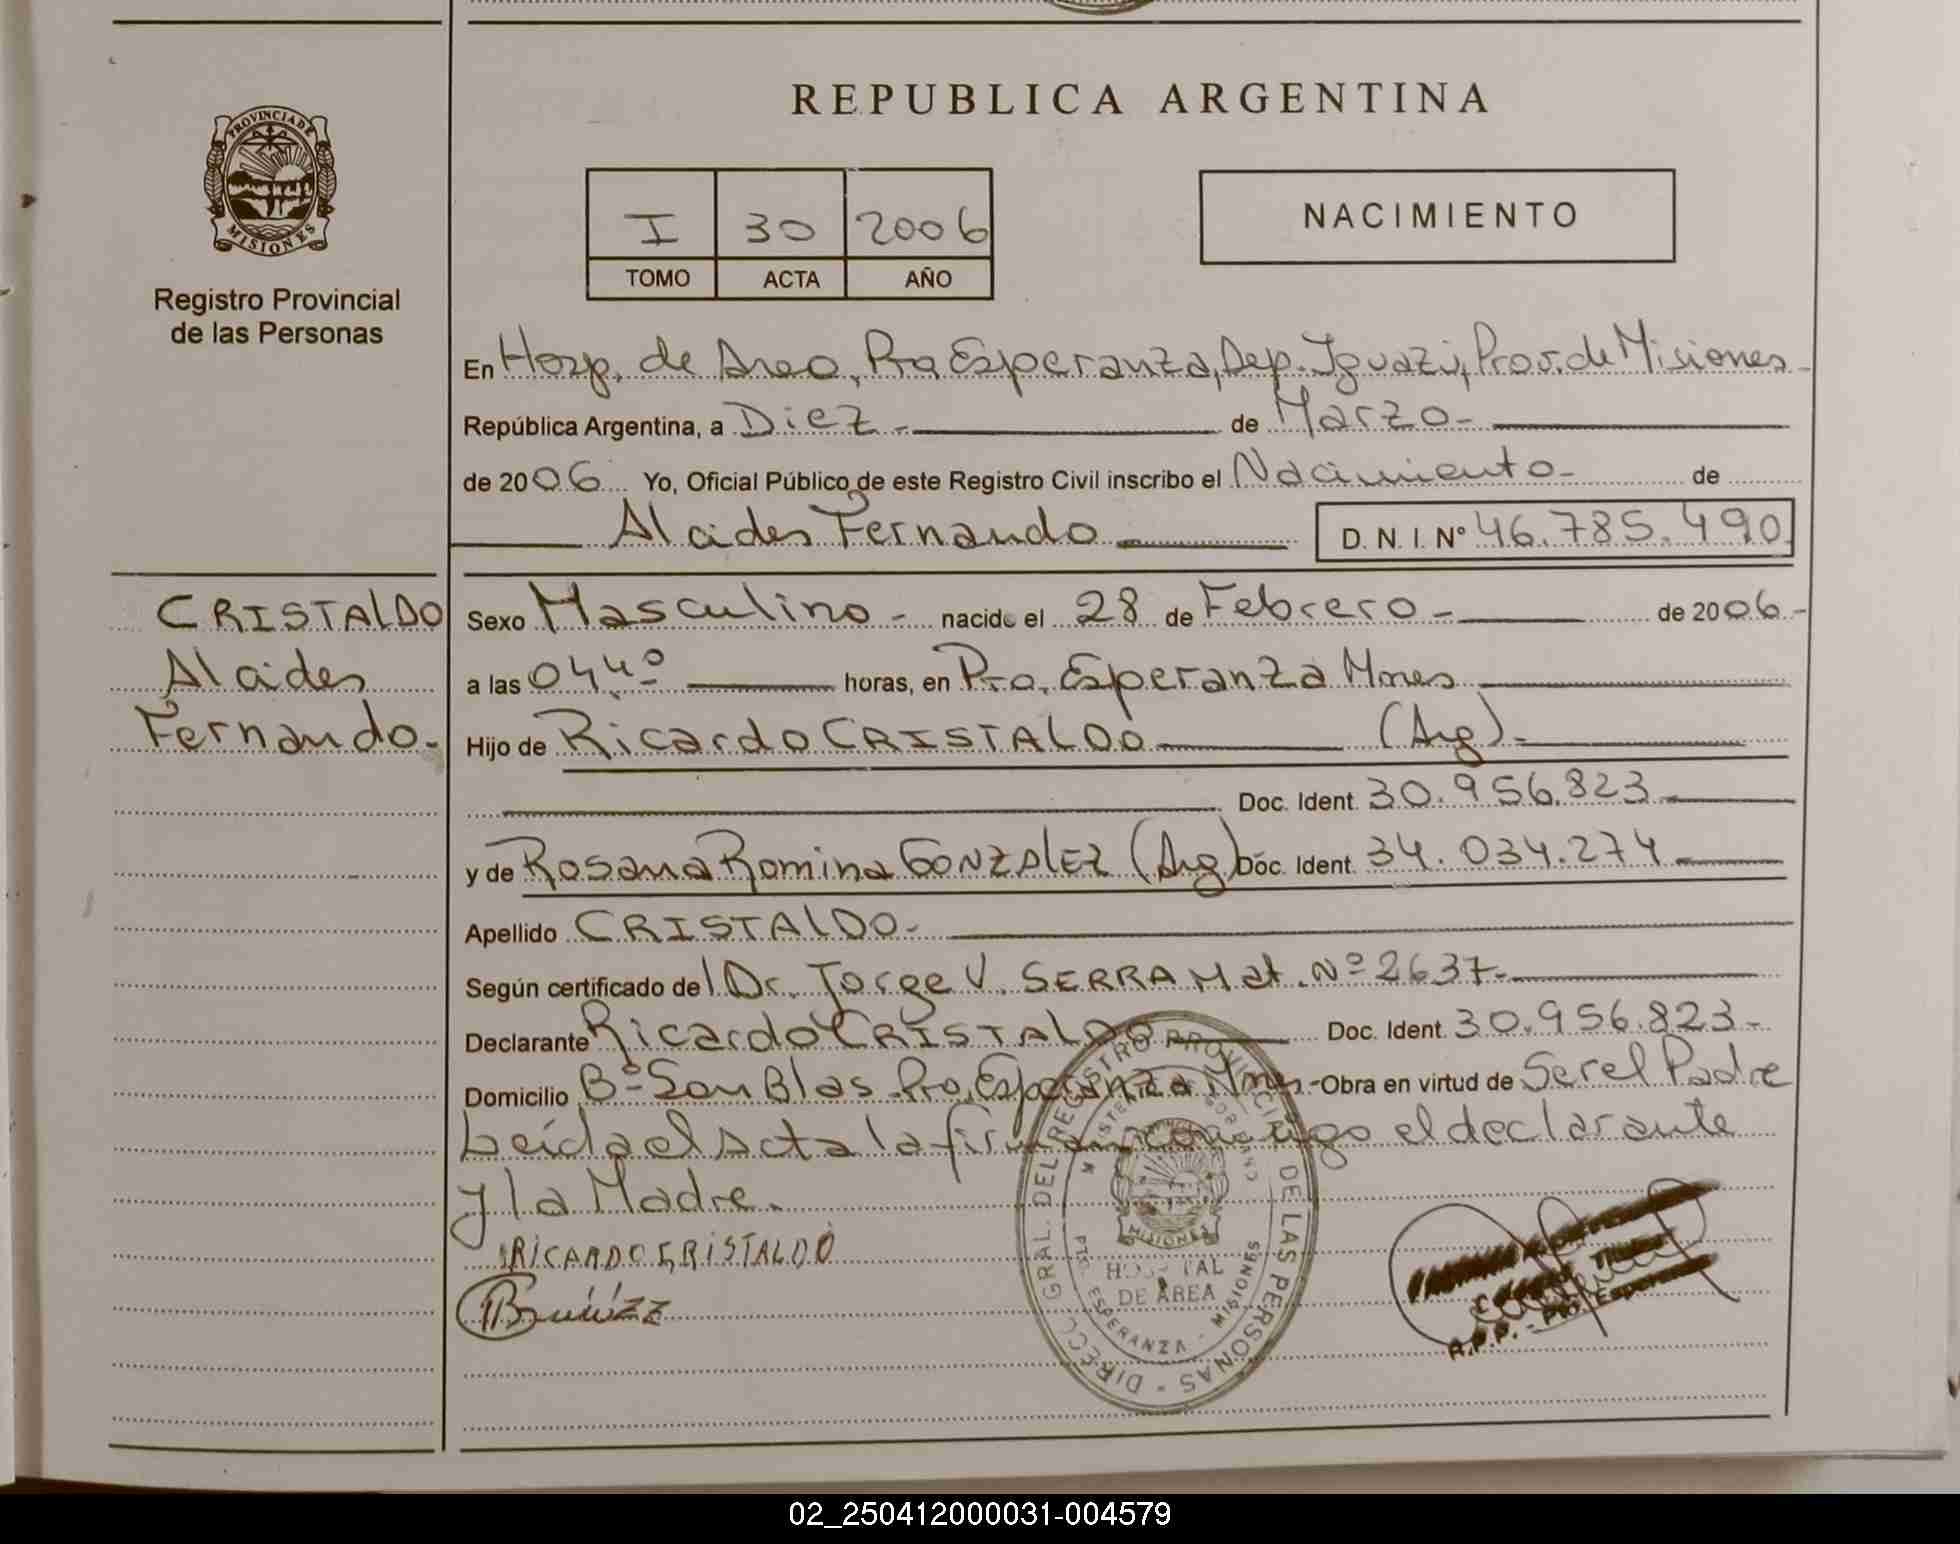 REPUBLICA ARGENTINA
PROVINCIA DE
MISIONES
Registro Provincial
de las Personas
I 30 2006
TOMO ACTA AÑO
NACIMIENTO
En Hosp. de Area, Pto Esperanza, Dep. Iguazú, Prov. de Misiones
República Argentina, a Diez - de Marzo -
de 2006 Yo, Oficial Público de este Registro Civil inscribo el Nacimiento - de
Alcides Fernando D. N. I. Nº 46.785.490
CRISTALDO
Alcides
Fernando.-
Sexo Masculino - nacido el 28 de Febrero - de 2006.-
a las 04 4º horas, en Pto. Esperanza Mnes
Hijo de Ricardo CRISTALDO (Arg).-
Doc. Ident. 30.956.823
y de Rosana Romina GONZALEZ (Arg) Doc. Ident. 34.034.274
Apellido CRISTALDO.-
Según certificado del Dr. Jorge V. SERRA Mat. Nº 2637.-
Declarante Ricardo CRISTALDO Doc. Ident. 30.956.823-
Domicilio Bº San Blas Pto. Esperanza Mnes.- Obra en virtud de Ser el Padre
Leída el acta la firman conmigo el declarante
y la Madre.
RICARDO CRISTALDO
DIRECC. GRAL. DEL REGISTRO PROVINCIAL DE LAS PERSONAS -
MISIONES
HOSPITAL
DE AREA
PTO. ESPERANZA - MISIONES
R.P.P. - Pto. Esperanza
02_250412000031-004579